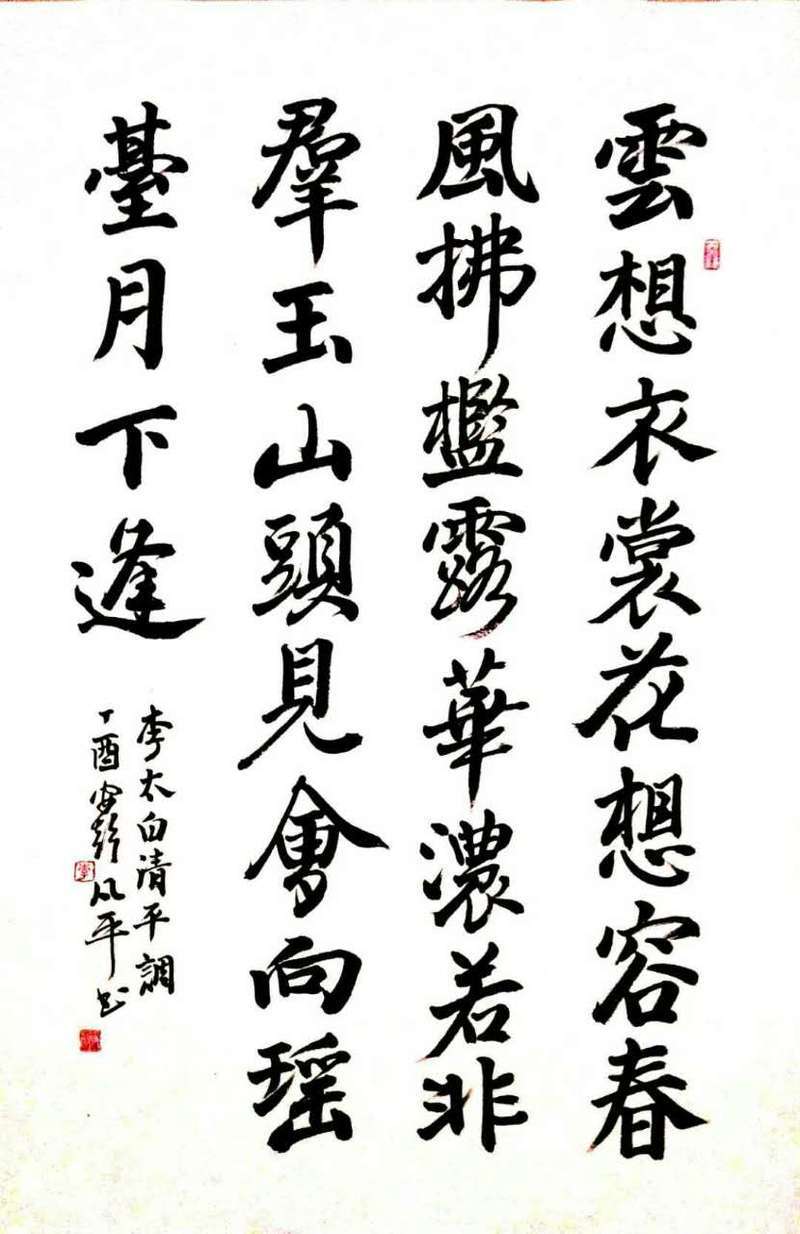 雲想衣裳花想容春
風拂檻露華濃若非
羣玉山頭見會向瑶
臺月下逢
李太白清平調
丁酉 平书